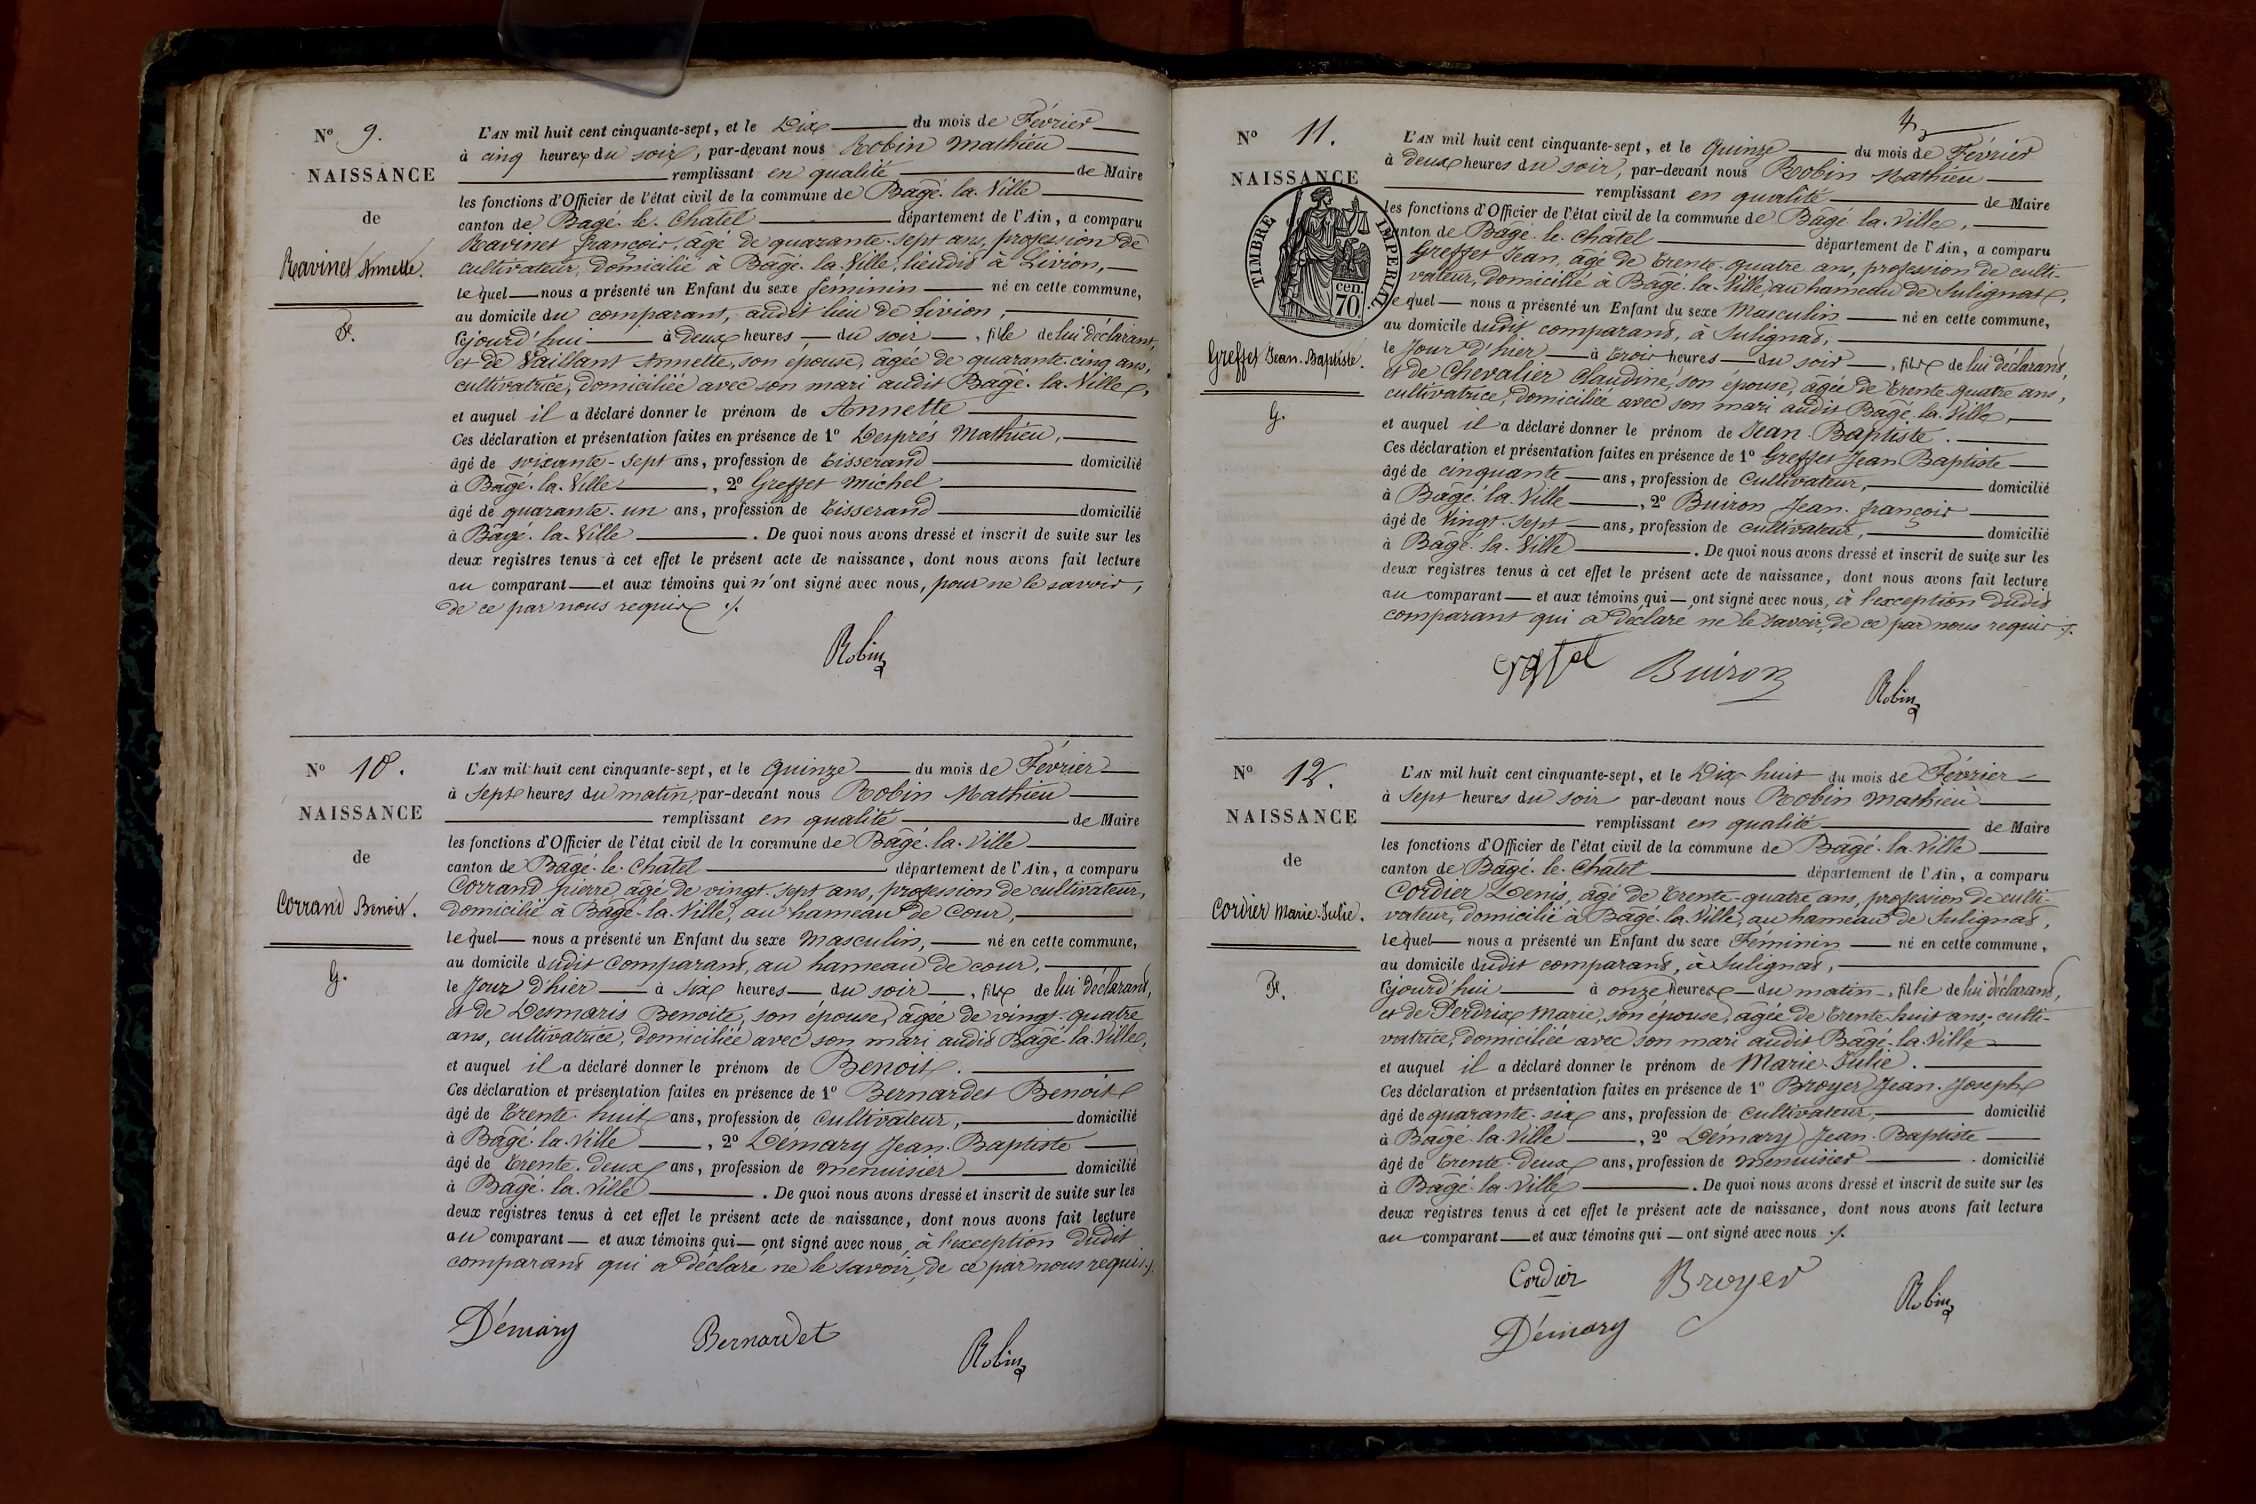 Nº 9.
NAISSANCE
de
Ravinet Annette.
F.
L'AN mil huit cent cinquante-sept, et le Dix du mois de Février
à cinq heures du soir, par-devant nous Robin Mathieu
remplissant en qualité de Maire
les fonctions d'Officier de l'état civil de la commune de Bâgé-la-Ville
canton de Bagé-le-Châtel département de l'Ain, a comparu
Ravinet françois, âgé de quarante-sept ans, profession de
cultivateur, domicilié à Bâgé-la-Ville, lieudit à Livion,
lequel nous a présenté un Enfant du sexe feminin né en cette commune,
au domicile du comparant, audit lieu de Livion,
cejourd'hui à Deux heures, du soir, fille de lui déclarant,
et de Vaillant Annette, son épouse, âgée de quarante-cinq ans,
cultivatrice, domiciliée avec son mari audit Bâgé-la-Ville,
et auquel il a déclaré donner le prénom de Annette
Ces déclaration et présentation faites en présence de 1º Després Mathieu,
âgé de soixante-sept ans, profession de Tisserand domicilié
à Bâgé-la-Ville, 2º Greffet Michel
âgé de quarante-un ans, profession de Tisserand domicilié
à Bâgé-la-Ville. De quoi nous avons dressé et inscrit de suite sur les
deux registres tenus à cet effet le présent acte de naissance, dont nous avons fait lecture
au comparant et aux témoins qui n'ont signé avec nous, pour ne le savoir,
de ce par nous requis ./.
Robin
Nº 10.
NAISSANCE
de
Corrand Benoit.
G.
L'AN mil huit cent cinquante-sept, et le Quinze du mois de Février
à Sept heures du matin, par-devant nous Robin Mathieu
remplissant en qualité de Maire
les fonctions d'Officier de l'état civil de la commune de Bâgé-la-Ville
canton de Bâgé-le-Châtel département de l'Ain, a comparu
Corrand pierre, âgé de vingt-sept ans, profession de cultivateur,
domicilié à Bâgé-la-Ville, au hameau de Cour,
lequel nous a présenté un Enfant du sexe Masculin, né en cette commune,
au domicile dudit Comparant, au hameau de cour,
le Jour d'hier à Six heures du soir, fils de lui déclarant,
et de Desmaris Benoite, son épouse, âgée de vingt-quatre
ans, cultivatrice, domiciliée avec son mari audit Bâgé-la-Ville,
et auquel il a déclaré donner le prénom de Benoit.
Ces déclaration et présentation faites en présence de 1º Bernardet Benoit
âgé de Trente-huit ans, profession de Cultivateur, domicilié
à Bâgé-la-Ville, 2º Démary Jean-Baptiste
âgé de Trente-Deux ans, profession de menuisier domicilié
à Bâgé-la-Ville. De quoi nous avons dressé et inscrit de suite sur les
deux registres tenus à cet effet le présent acte de naissance, dont nous avons fait lecture
au comparant et aux témoins qui ont signé avec nous, à l'exception dudit
comparant qui a déclaré ne le savoir, de ce par nous requis ./.
Démary Bernardet Robin
4
Nº 11.
NAISSANCE
TIMBRE IMPÉRIAL
cen. 70
Greffet Jean-Baptiste.
G.
L'AN mil huit cent cinquante-sept, et le Quinze du mois de Février
à deux heures du soir, par-devant nous Robin Mathieu
remplissant en qualité de Maire
les fonctions d'Officier de l'état civil de la commune de Bâgé-la-Ville,
canton de Bâgé-le-Châtel département de l'Ain, a comparu
Greffet Jean, âgé de Trente-quatre ans, profession de culti-
vateur, domicilié à Bâgé-la-Ville, au hameau de Sulignat,
lequel nous a présenté un Enfant du sexe Masculin né en cette commune,
au domicile dudit comparant, à Sulignat,
le Jour d'hier à trois heures du soir, fils de lui déclarant,
et de Chevalier Claudine, son épouse, âgée de Trente-quatre ans,
cultivatrice, domiciliée avec son mari audit Bâgé-la-Ville,
et auquel il a déclaré donner le prénom de Jean-Baptiste.
Ces déclaration et présentation faites en présence de 1º Greffet Jean Baptiste
âgé de cinquante ans, profession de Cultivateur, domicilié
à Bâgé-la-Ville, 2º Buiron Jean-françois
âgé de Vingt-sept ans, profession de cultivateur, domicilié
à Bâgé-la-Ville. De quoi nous avons dressé et inscrit de suite sur les
deux registres tenus à cet effet le présent acte de naissance, dont nous avons fait lecture
au comparant et aux témoins qui ont signé avec nous, à l'exception dudit
comparant qui a déclaré ne le savoir, de ce par nous requis ./.
Buiron Robin
Nº 12.
NAISSANCE
de
Cordier Marie-Julie.
F.
L'AN mil huit cent cinquante-sept, et le Dix-huit du mois de Février
à Sept heures du soir par-devant nous Robin Mathieu
remplissant en qualité de Maire
les fonctions d'Officier de l'état civil de la commune de Bâgé-la-Ville
canton de Bâgé-le-Châtel département de l'Ain, a comparu
Cordier Denis, âgé de Trente-quatre ans, profession de culti-
vateur, domicilié à Bâgé-la-Ville, au hameau de Sulignat,
lequel nous a présenté un Enfant du sexe Féminin né en cette commune,
au domicile dudit comparant, à Sulignat,
cejourd'hui à onze heures du matin, fille de lui déclarant,
et de Perdrix Marie, son épouse, âgée de Trente-huit ans, culti-
vatrice, domiciliée avec son mari audit Bâgé-la-Ville
et auquel il a déclaré donner le prénom de Marie-Julie.
Ces déclaration et présentation faites en présence de 1º Broyer Jean-Joseph
âgé de quarante-six ans, profession de Cultivateur, domicilié
à Bâgé-la-Ville, 2º Démary Jean-Baptiste
âgé de Trente-Deux ans, profession de menuisier domicilié
à Bâgé-la-Ville. De quoi nous avons dressé et inscrit de suite sur les
deux registres tenus à cet effet le présent acte de naissance, dont nous avons fait lecture
au comparant et aux témoins qui ont signé avec nous ./.
Cordier Broyer Robin
Démary